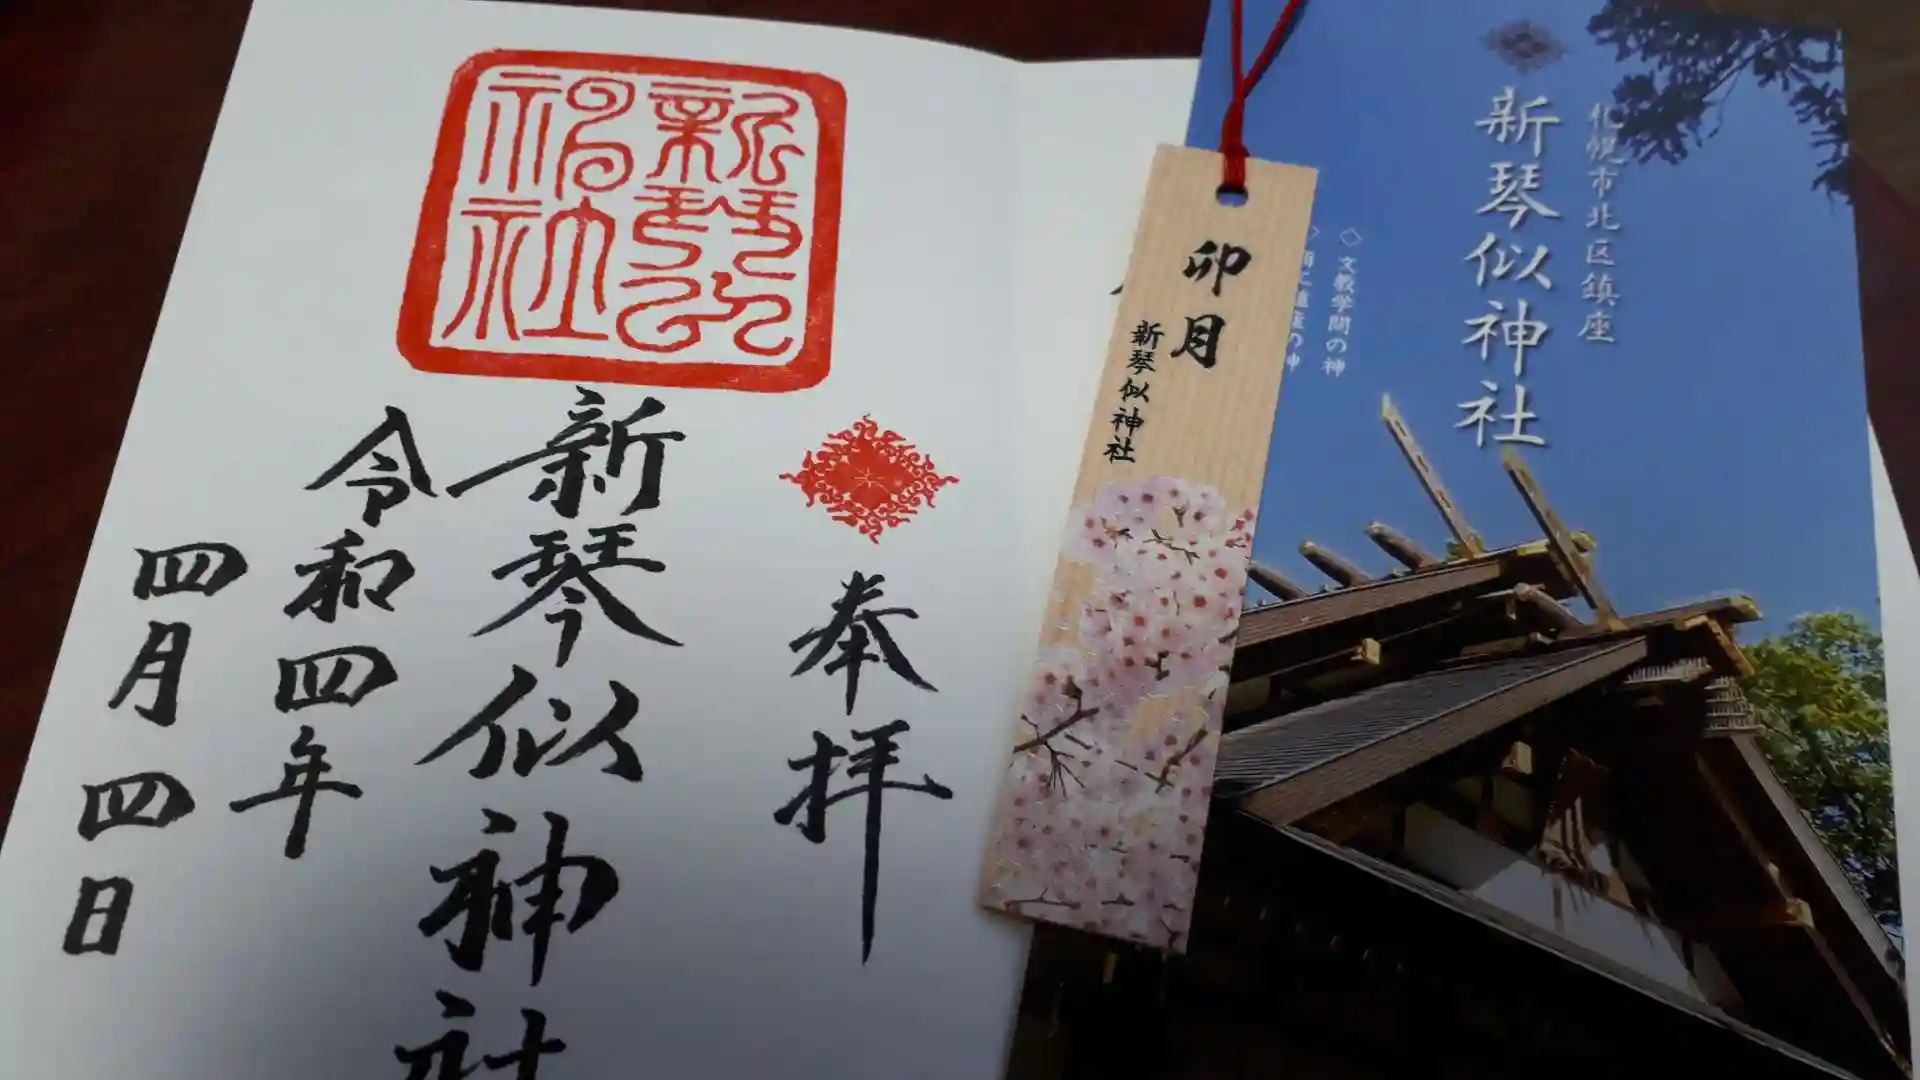 札幌市北区鎮座
新琴似神社
◇文教学問の神
卯月
新琴似神社
奉拝
新琴似神社
令和四年
四月四日
新琴似神社